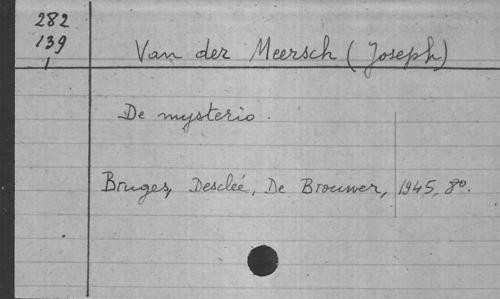 282
139
1
Van der Meersch (Joseph)
De mysterio.
Bruges, Desclée, De Brouwer, 1945, 8º.